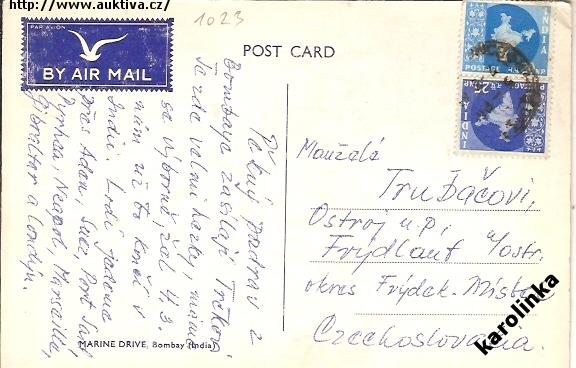 http://www.auktiva.cz/
1023
PAR AVION
BY AIR MAIL
POST CARD
INDIA
POSTAGE
INDIA
POSTAGE
Pěkný pozdrav z
Bombaye zasílají Trčkovi
Je zde velmi hezky, máme
se výborně, žal 4.3.
nám už to končí v
Indii. Lodí jedeme
přes Aden, Suez, Port Said
Neapol, Marseille,
Gibraltar a Londýn.
Manželé
Trubačovi,
Ostroj n.p.,
Frýdlant n/Ostr.
okres Frýdek-Místek
Czechoslovakia.
MARINE DRIVE, Bombay (India)
karolinka